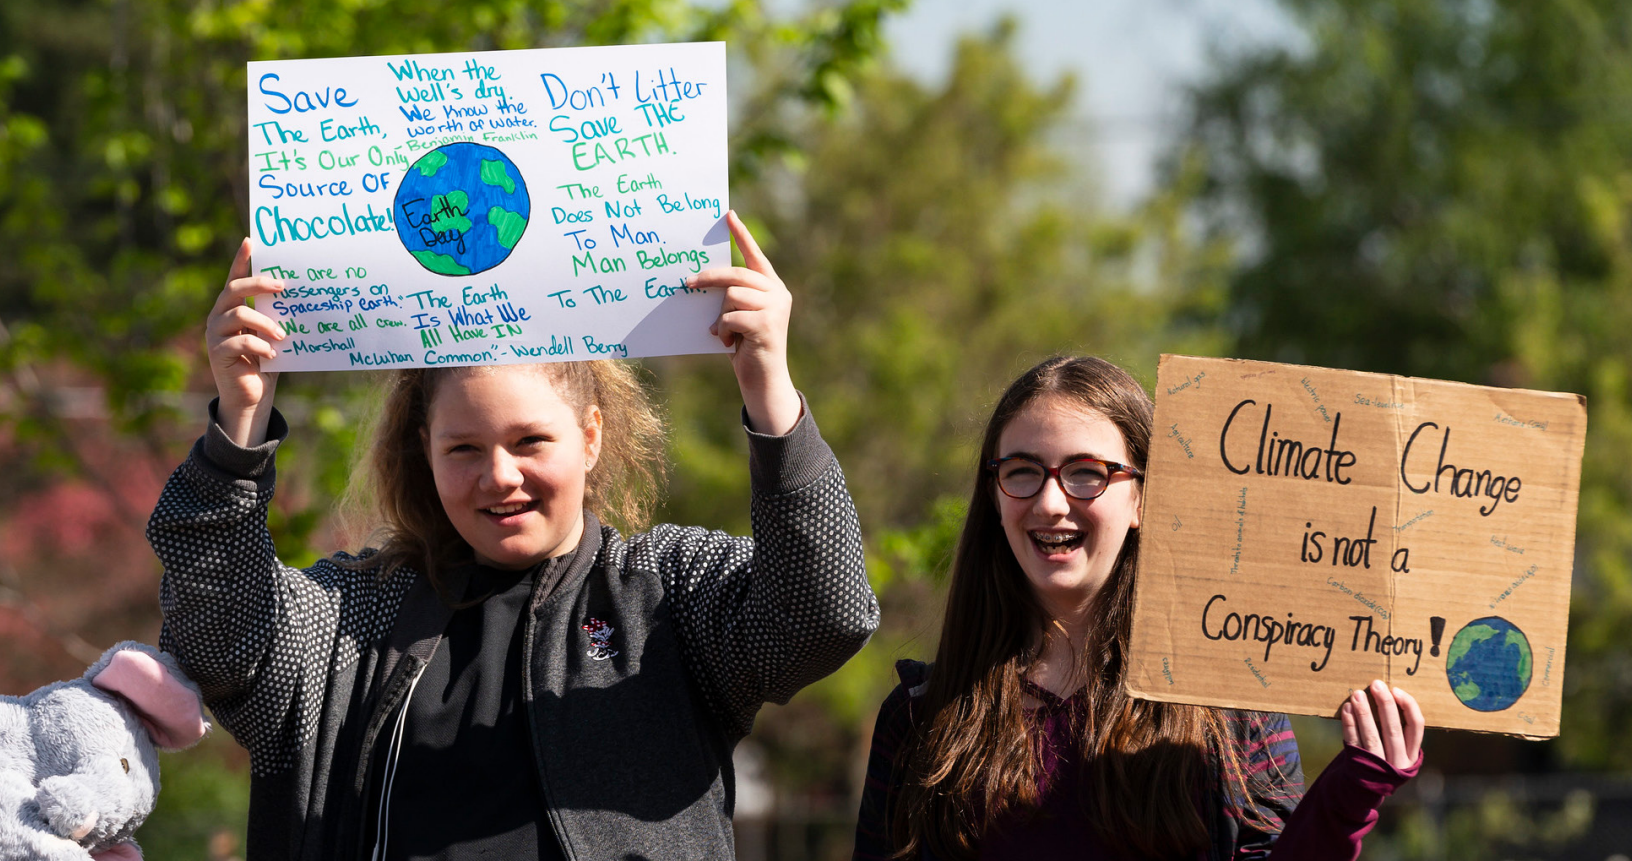 Save
The Earth,
It's Our Only
Source OF
Chocolate!
When the
Well's dry.
We Know the
worth of water.
Benjamin Franklin
Don't Litter
Save THE
EARTH.
Earth
Day
The Earth
Does Not Belong
To Man.
Man Belongs
To The Earth.
The are no
Passengers on
Spaceship Earth."
We are all crew.
-Marshall
McLuhan
The Earth
Is What We
All Have IN
Common."-Wendell Berry
Climate Change
is not a
Conspiracy Theory!
Natural gas
Electric power
Agriculture
Oil
Residential
Commercial